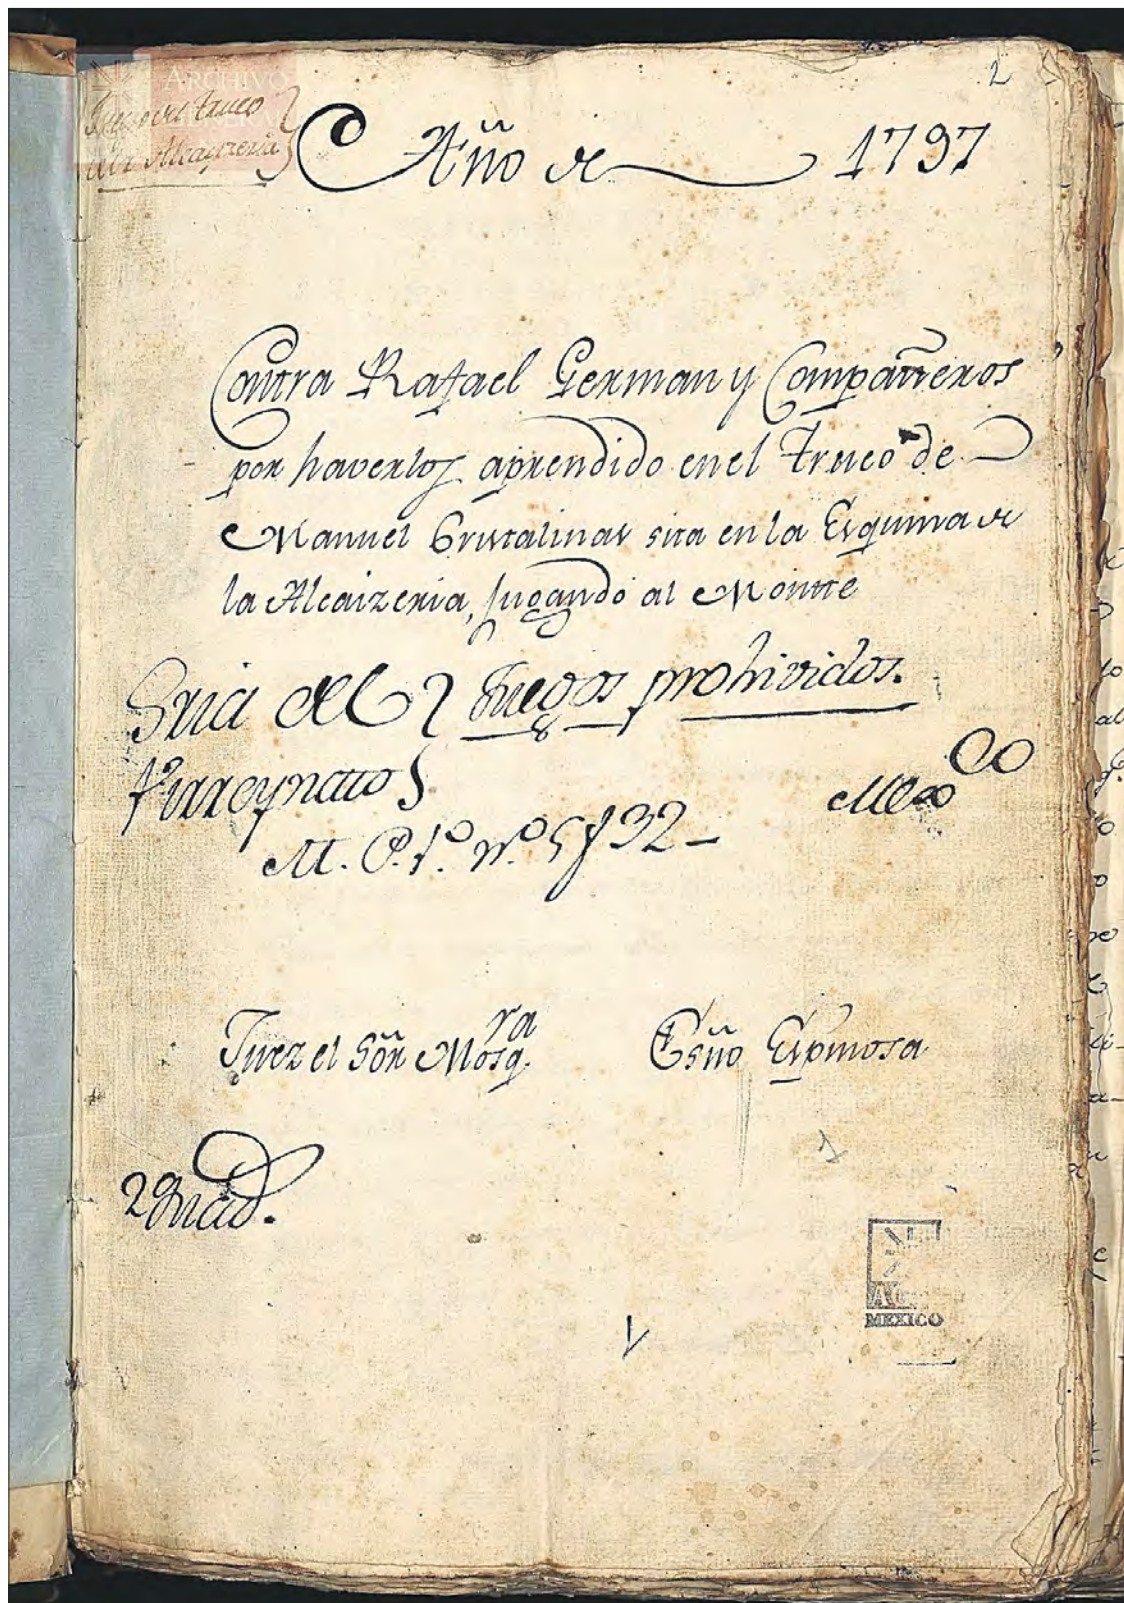 2
ARCHIVO
Juego del truco
de la Alcayzeria
Año de 1797
Contra Rafael German y Compañeros
por haverlos aprendido en el truco de
Manuel Cristalinas sita en la Esquina de
la Alcaizeria, jugando al Monte
Sria del Juegos prohividos.
Virreynato
Mexco
M. P. 1º. Nº. 5 f 32
Juez el Sōr Mosqra
Esño Espinosa
2
1
MEXICO